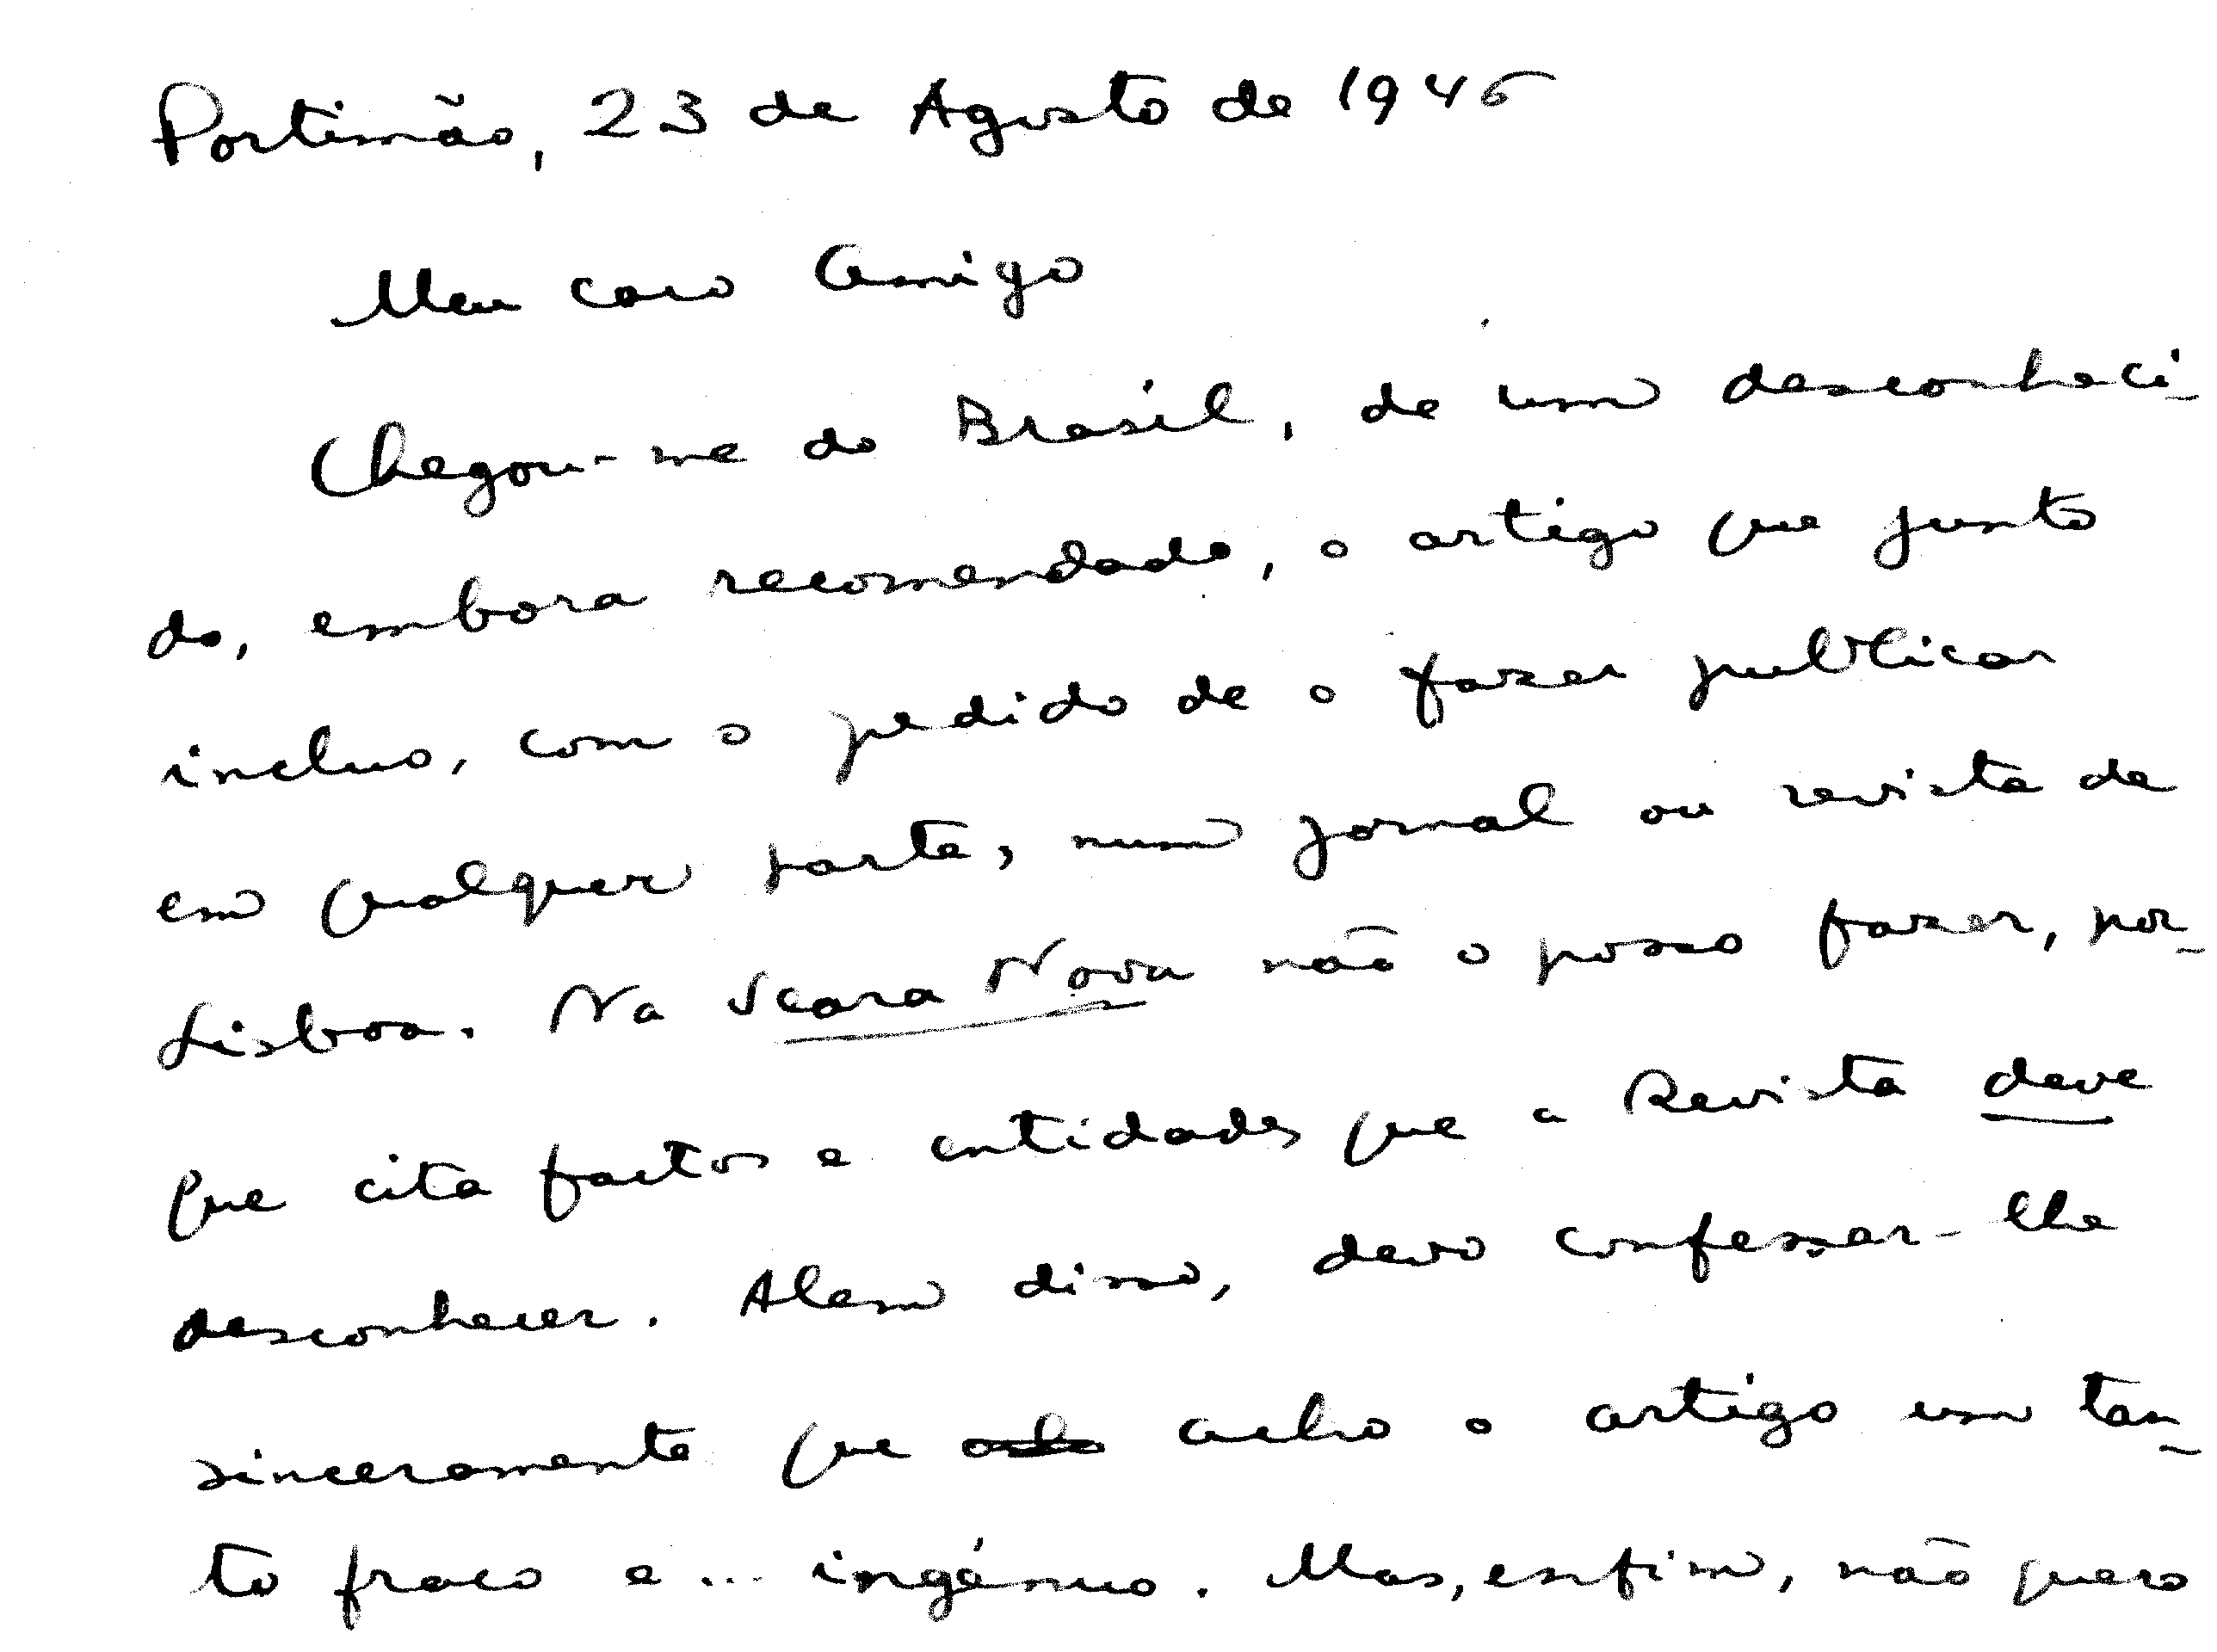 Portimão, 23 de Agosto de 1945
Meu caro Amigo
Chegou-me do Brasil, de um desconheci-
do, embora recomendado, o artigo que junto
incluo, com o pedido de o fazer publicar
em qualquer parte, num jornal ou revista de
Lisboa. Na Seara Nova não o posso fazer, por-
que cita factos e entidades que a Revista deve
desconhecer. Alem disso, devo confessar-lhe
sinceramente que acho o artigo um tan-
to fraco e... ingénuo. Mas, enfim, não quero